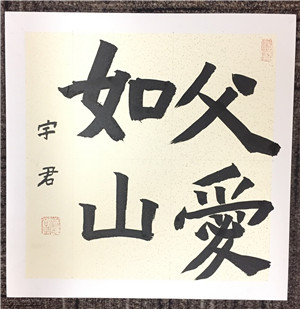 父愛
如山
宇君